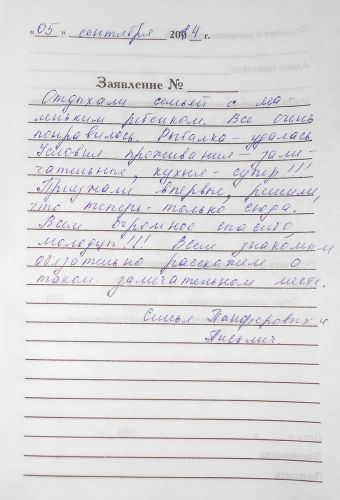 «05» сентября 2014 г.
Заявление №
Отдыхали семьёй с ма-
леньким ребенком. Все очень
понравилось. Рыбалка - удалась.
Условия проживания - заме-
чательные, кухня - супер!!!
Приезжали впервые, решили,
что теперь - только сюда.
Всем огромное спасибо,
молодцы!!! Всем знакомым
обязательно расскажем о
таком замечательном месте.
Семья и